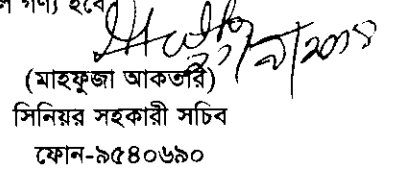 গণ্য হবে
(মাহফুজা আকতার)
সিনিয়র সহকারী সচিব
ফোন-৯৫৪০৬৯০